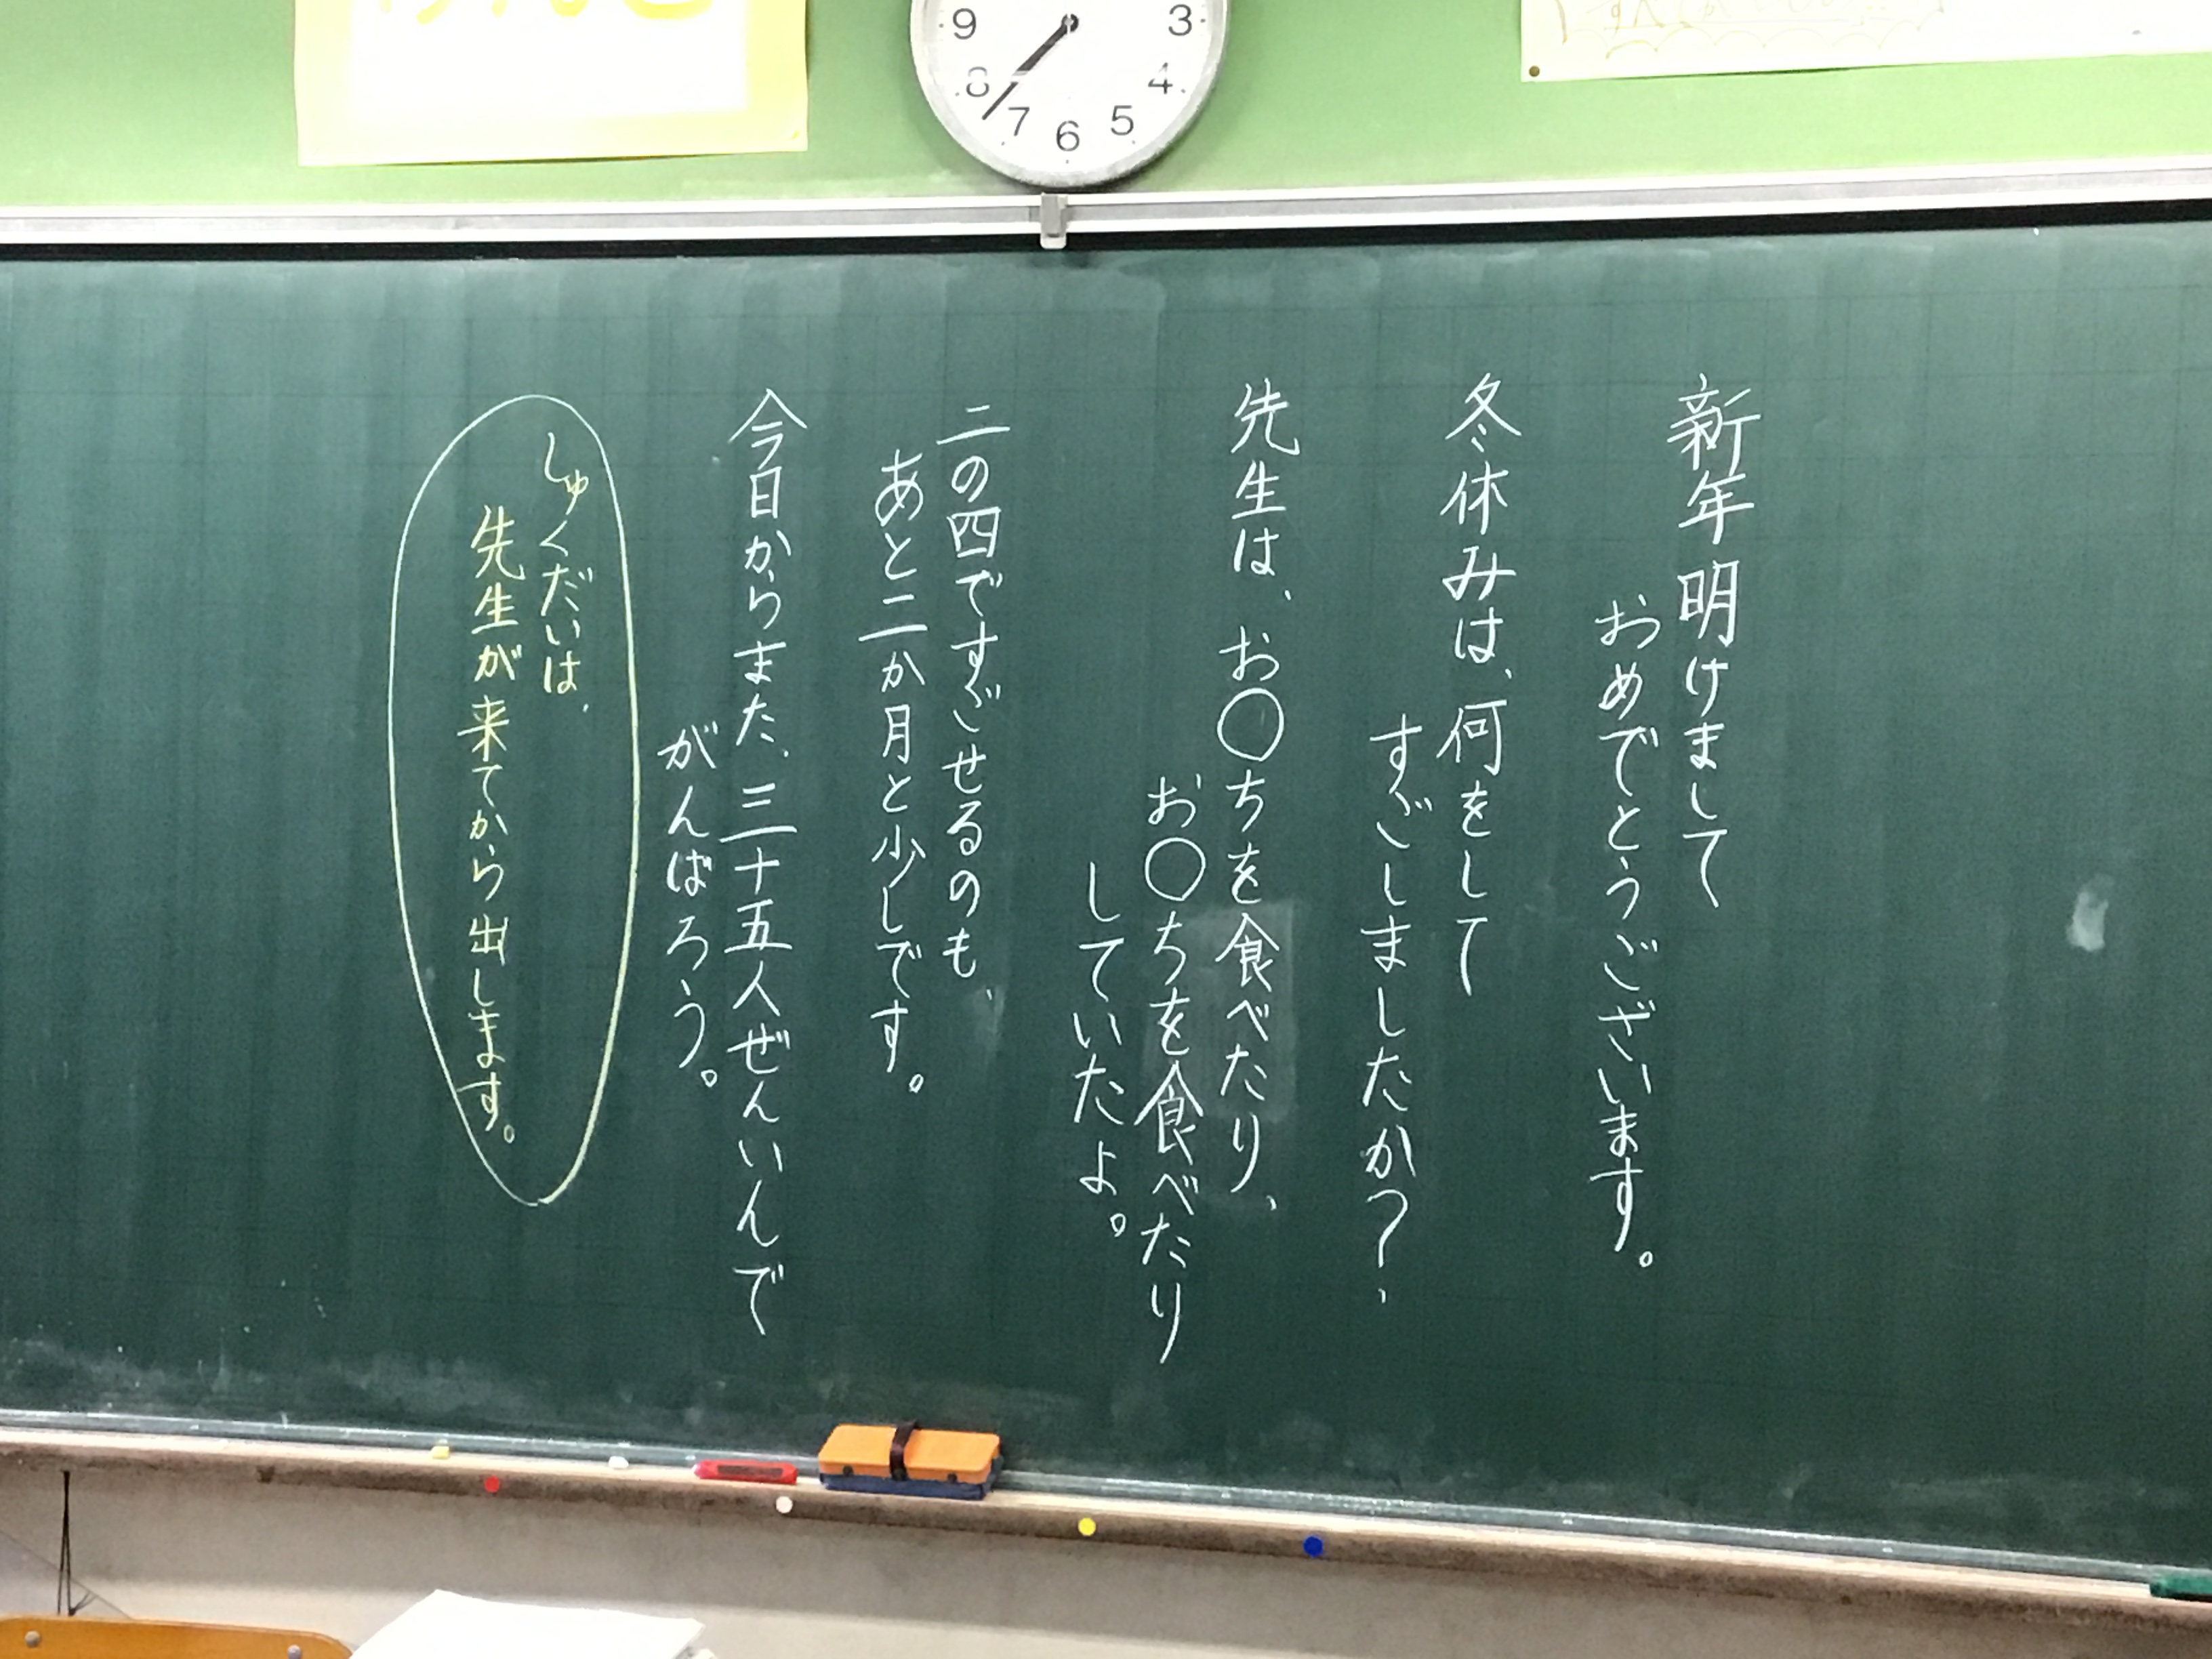 新年明けまして
おめでとうございます。
冬休みは、何をして
すごしましたか?
先生は、お〇ちを食べたり、
お〇ちを食べたり
していたよ。
二の四ですごせるのも、
あと二か月と少しです。
今日からまた、三十五人ぜんいんで
がんばろう。
しゅくだいは、
先生が来てから出します。
9
3
8
4
7
5
6